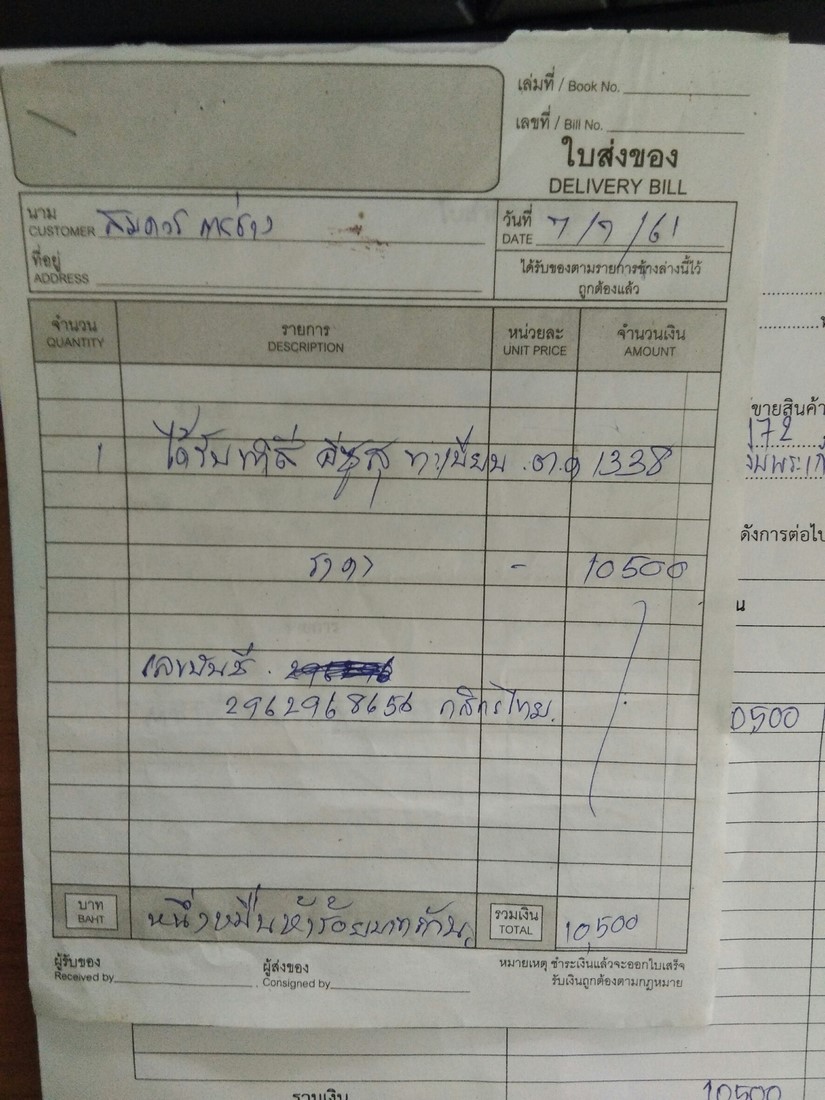 เล่มที่ / Book No.
เลขที่ / Bill No.
ใบส่งของ
DELIVERY BILL
นาม
CUSTOMER สมควร การช่าง
วันที่
DATE 7/7/61
ที่อยู่
ADDRESS
ได้รับของตามรายการข้างล่างนี้ไว้
ถูกต้องแล้ว
จำนวน รายการ หน่วยละ จำนวนเงิน
QUANTITY DESCRIPTION UNIT PRICE AMOUNT
1 ได้รับทำสี อีซูสุ ทะเบียน .ต.ฉ 1338
ราคา - 10500
เลขบัญชี .
2962968656 กสิกรไทย.
บาท
BAHT
หนึ่งหมื่นห้าร้อยบาทถ้วน
รวมเงิน
TOTAL
10,500
ผู้รับของ
Received by
ผู้ส่งของ
Consigned by
หมายเหตุ ชำระเงินแล้วจะออกใบเสร็จ
รับเงินถูกต้องตามกฎหมาย
ขายสินค้า
172
ดังการต่อไป
น
0500
รวมเงิน 10500